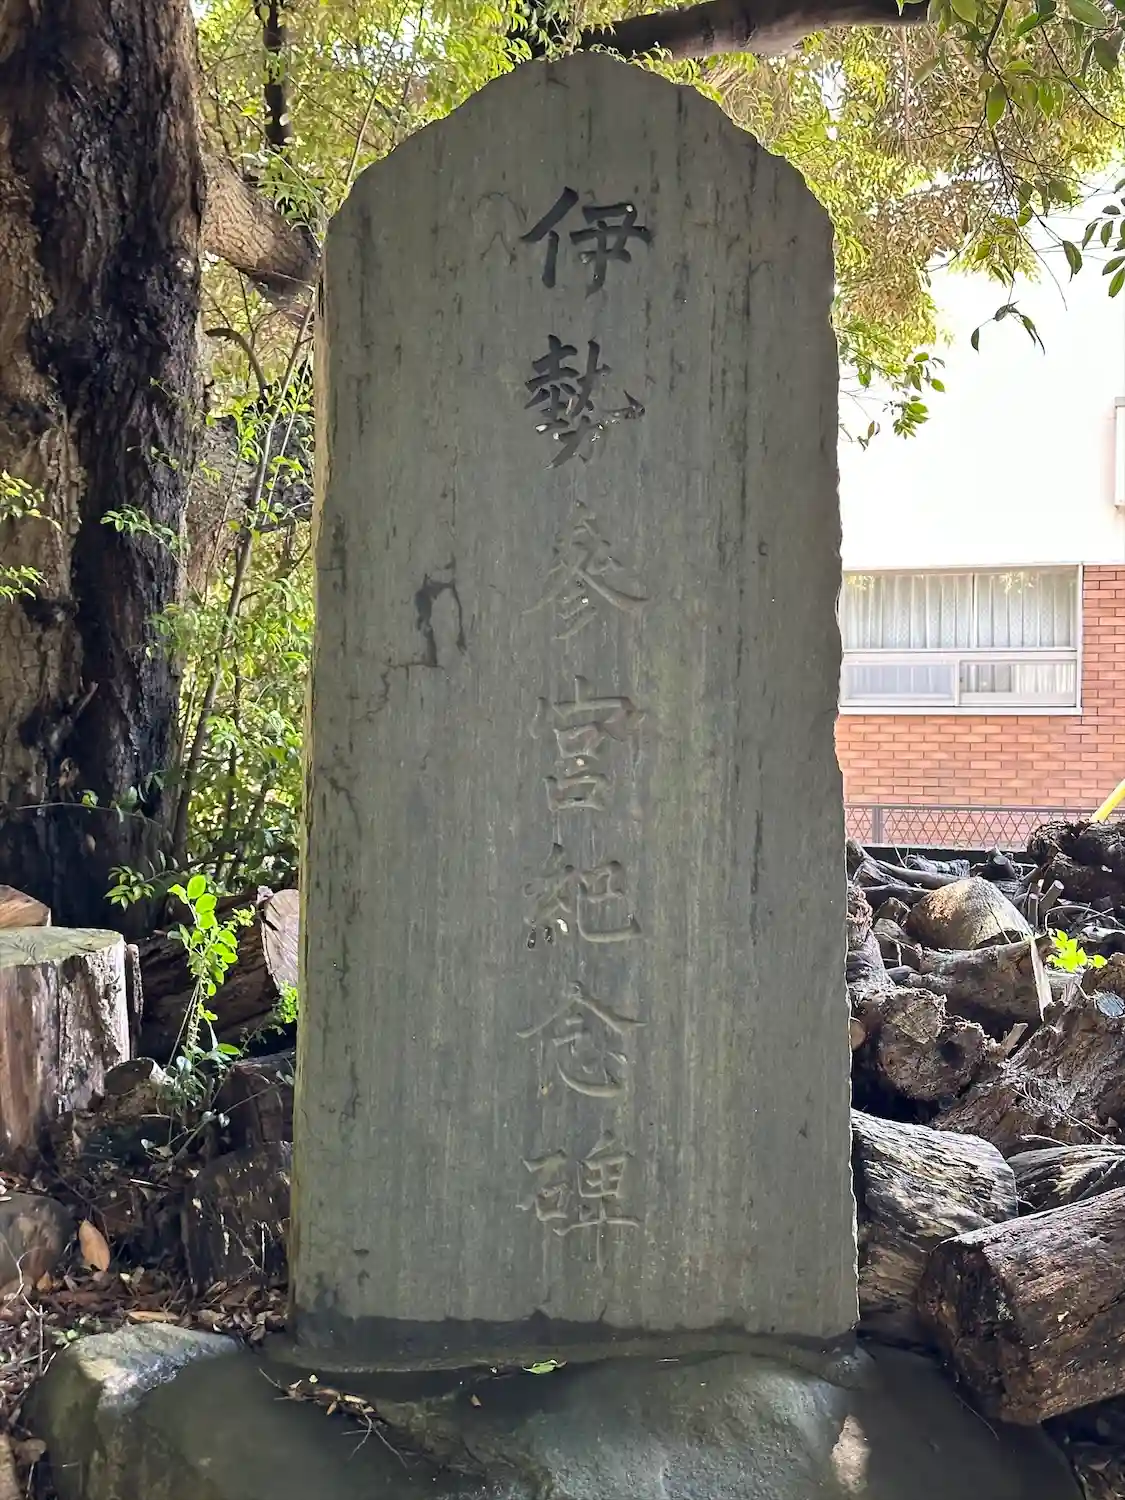 伊勢参宮紀念碑